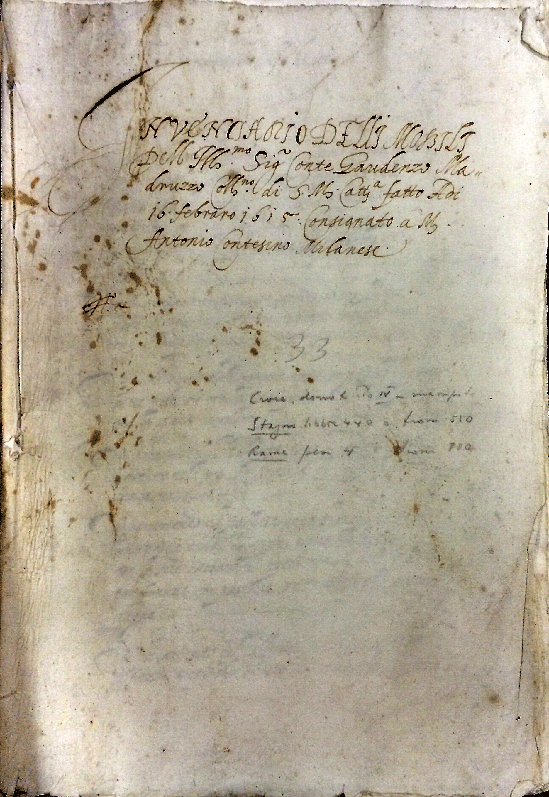 INVENTARIO DELLI MOBILI
Dell Ill.mo Sig.r Conte Gaudenzo Ma-
druzzo di S. M. Catt.a fatto Adi
16. febraro 1615. Consignato a M.
Antonio Contesino Milanese.
33
Croce, donata da
Stagni libbre 440 a from 550
Rame pesi 4 from 700